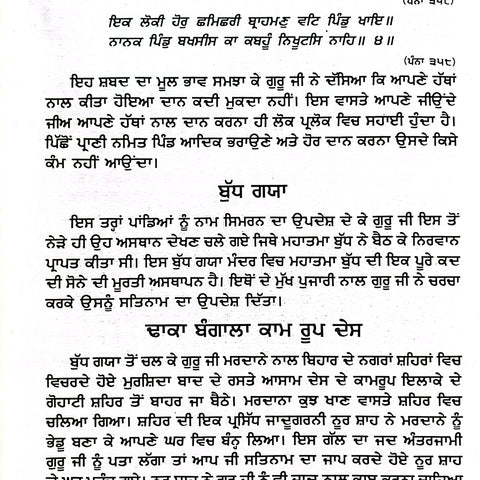 (ਪੰਨਾ ੩੫੮)
ਇਕ ਲੋਕੀ ਹੋਰੁ ਛਮਿਛਰੀ ਬ੍ਰਾਹਮਣੁ ਵਟਿ ਪਿੰਡੁ ਖਾਇ॥
ਨਾਨਕ ਪਿੰਡੁ ਬਖਸੀਸ ਕਾ ਕਬਹੂੰ ਨਿਖੂਟਸਿ ਨਾਹਿ॥ ੪॥
(ਪੰਨਾ ੩੫੮)
ਇਹ ਸ਼ਬਦ ਦਾ ਮੂਲ ਭਾਵ ਸਮਝਾ ਕੇ ਗੁਰੂ ਜੀ ਨੇ ਦੱਸਿਆ ਕਿ ਆਪਣੇ ਹੱਥਾਂ
ਨਾਲ ਕੀਤਾ ਹੋਇਆ ਦਾਨ ਕਦੀ ਮੁਕਦਾ ਨਹੀਂ। ਇਸ ਵਾਸਤੇ ਆਪਣੇ ਜੀਉਂਦੇ
ਜੀਅ ਆਪਣੇ ਹੱਥਾਂ ਨਾਲ ਦਾਨ ਕਰਨਾ ਹੀ ਲੋਕ ਪ੍ਰਲੋਕ ਵਿਚ ਸਹਾਈ ਹੁੰਦਾ ਹੈ।
ਪਿੱਛੋਂ ਪ੍ਰਾਣੀ ਨਮਿਤ ਪਿੰਡ ਆਦਿਕ ਭਰਾਉਣੇ ਅਤੇ ਹੋਰ ਦਾਨ ਕਰਨਾ ਉਸਦੇ ਕਿਸੇ
ਕੰਮ ਨਹੀਂ ਆਉਂਦਾ।
ਬੁੱਧ ਗਯਾ
ਇਸ ਤਰ੍ਹਾਂ ਪਾਂਡਿਆਂ ਨੂੰ ਨਾਮ ਸਿਮਰਨ ਦਾ ਉਪਦੇਸ਼ ਦੇ ਕੇ ਗੁਰੂ ਜੀ ਇਸ ਤੋਂ
ਨੇੜੇ ਹੀ ਉਹ ਅਸਥਾਨ ਦੇਖਣ ਚਲੇ ਗਏ ਜਿਥੇ ਮਹਾਤਮਾ ਬੁੱਧ ਨੇ ਬੈਠ ਕੇ ਨਿਰਵਾਨ
ਪ੍ਰਾਪਤ ਕੀਤਾ ਸੀ। ਇਸ ਬੁੱਧ ਗਯਾ ਮੰਦਰ ਵਿਚ ਮਹਾਤਮਾ ਬੁੱਧ ਦੀ ਇਕ ਪੂਰੇ ਕਦ
ਦੀ ਸੋਨੇ ਦੀ ਮੂਰਤੀ ਅਸਥਾਪਨ ਹੈ। ਇਥੋਂ ਦੇ ਮੁੱਖ ਪੁਜਾਰੀ ਨਾਲ ਗੁਰੂ ਜੀ ਨੇ ਚਰਚਾ
ਕਰਕੇ ਉਸਨੂੰ ਸਤਿਨਾਮ ਦਾ ਉਪਦੇਸ਼ ਦਿੱਤਾ।
ਢਾਕਾ ਬੰਗਾਲਾ ਕਾਮ ਰੂਪ ਦੇਸ
ਬੁੱਧ ਗਯਾ ਤੋਂ ਚਲ ਕੇ ਗੁਰੂ ਜੀ ਮਰਦਾਨੇ ਨਾਲ ਬਿਹਾਰ ਦੇ ਨਗਰਾਂ ਸ਼ਹਿਰਾਂ ਵਿਚ
ਵਿਚਰਦੇ ਹੋਏ ਮੁਰਸ਼ਿਦਾ ਬਾਦ ਦੇ ਰਸਤੇ ਆਸਾਮ ਦੇਸ ਦੇ ਕਾਮਰੂਪ ਇਲਾਕੇ ਦੇ
ਗੋਹਾਟੀ ਸ਼ਹਿਰ ਤੋਂ ਬਾਹਰ ਜਾ ਬੈਠੇ। ਮਰਦਾਨਾ ਕੁਝ ਖਾਣ ਵਾਸਤੇ ਸ਼ਹਿਰ ਵਿਚ
ਚਲਿਆ ਗਿਆ। ਸ਼ਹਿਰ ਦੀ ਇਕ ਪ੍ਰਸਿੱਧ ਜਾਦੂਗਰਨੀ ਨੂਰ ਸ਼ਾਹ ਨੇ ਮਰਦਾਨੇ ਨੂੰ
ਭੇਡੂ ਬਣਾ ਕੇ ਆਪਣੇ ਘਰ ਵਿਚ ਬੰਨ੍ਹ ਲਿਆ। ਇਸ ਗੱਲ ਦਾ ਜਦ ਅੰਤਰਜਾਮੀ
ਗੁਰੂ ਜੀ ਨੂੰ ਪਤਾ ਲੱਗਾ ਤਾਂ ਆਪ ਜੀ ਸਤਿਨਾਮ ਦਾ ਜਾਪ ਕਰਦੇ ਹੋਏ ਨੂਰ ਸ਼ਾਹ